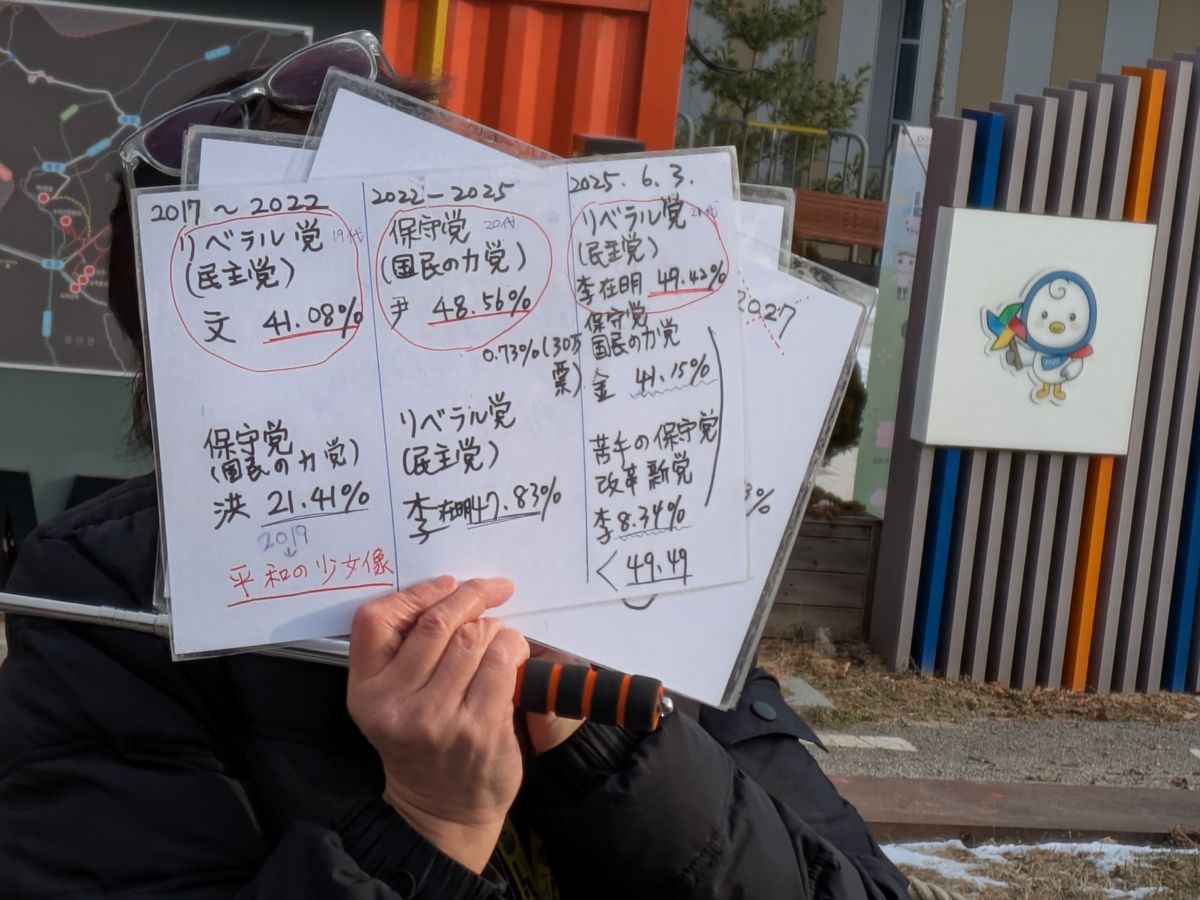 2017 ~ 2022
リベラル党 19代
(民主党)
文 41.08%
保守党
(国民の力党)
洪 21.41%
2019
↓
平和の少女像
2022-2025
保守党 20代
(国民の力党)
尹 48.56%
0.73%(30万
票)
リベラル党
(民主党)
李在明47.83%
2025. 6. 3.
リベラル党 21代
(民主党)
李在明 49.42%
保守党
国民の力党
金 41.15%
苦手の保守党
改革新党
李 8.34%
< 49.49
2027
%